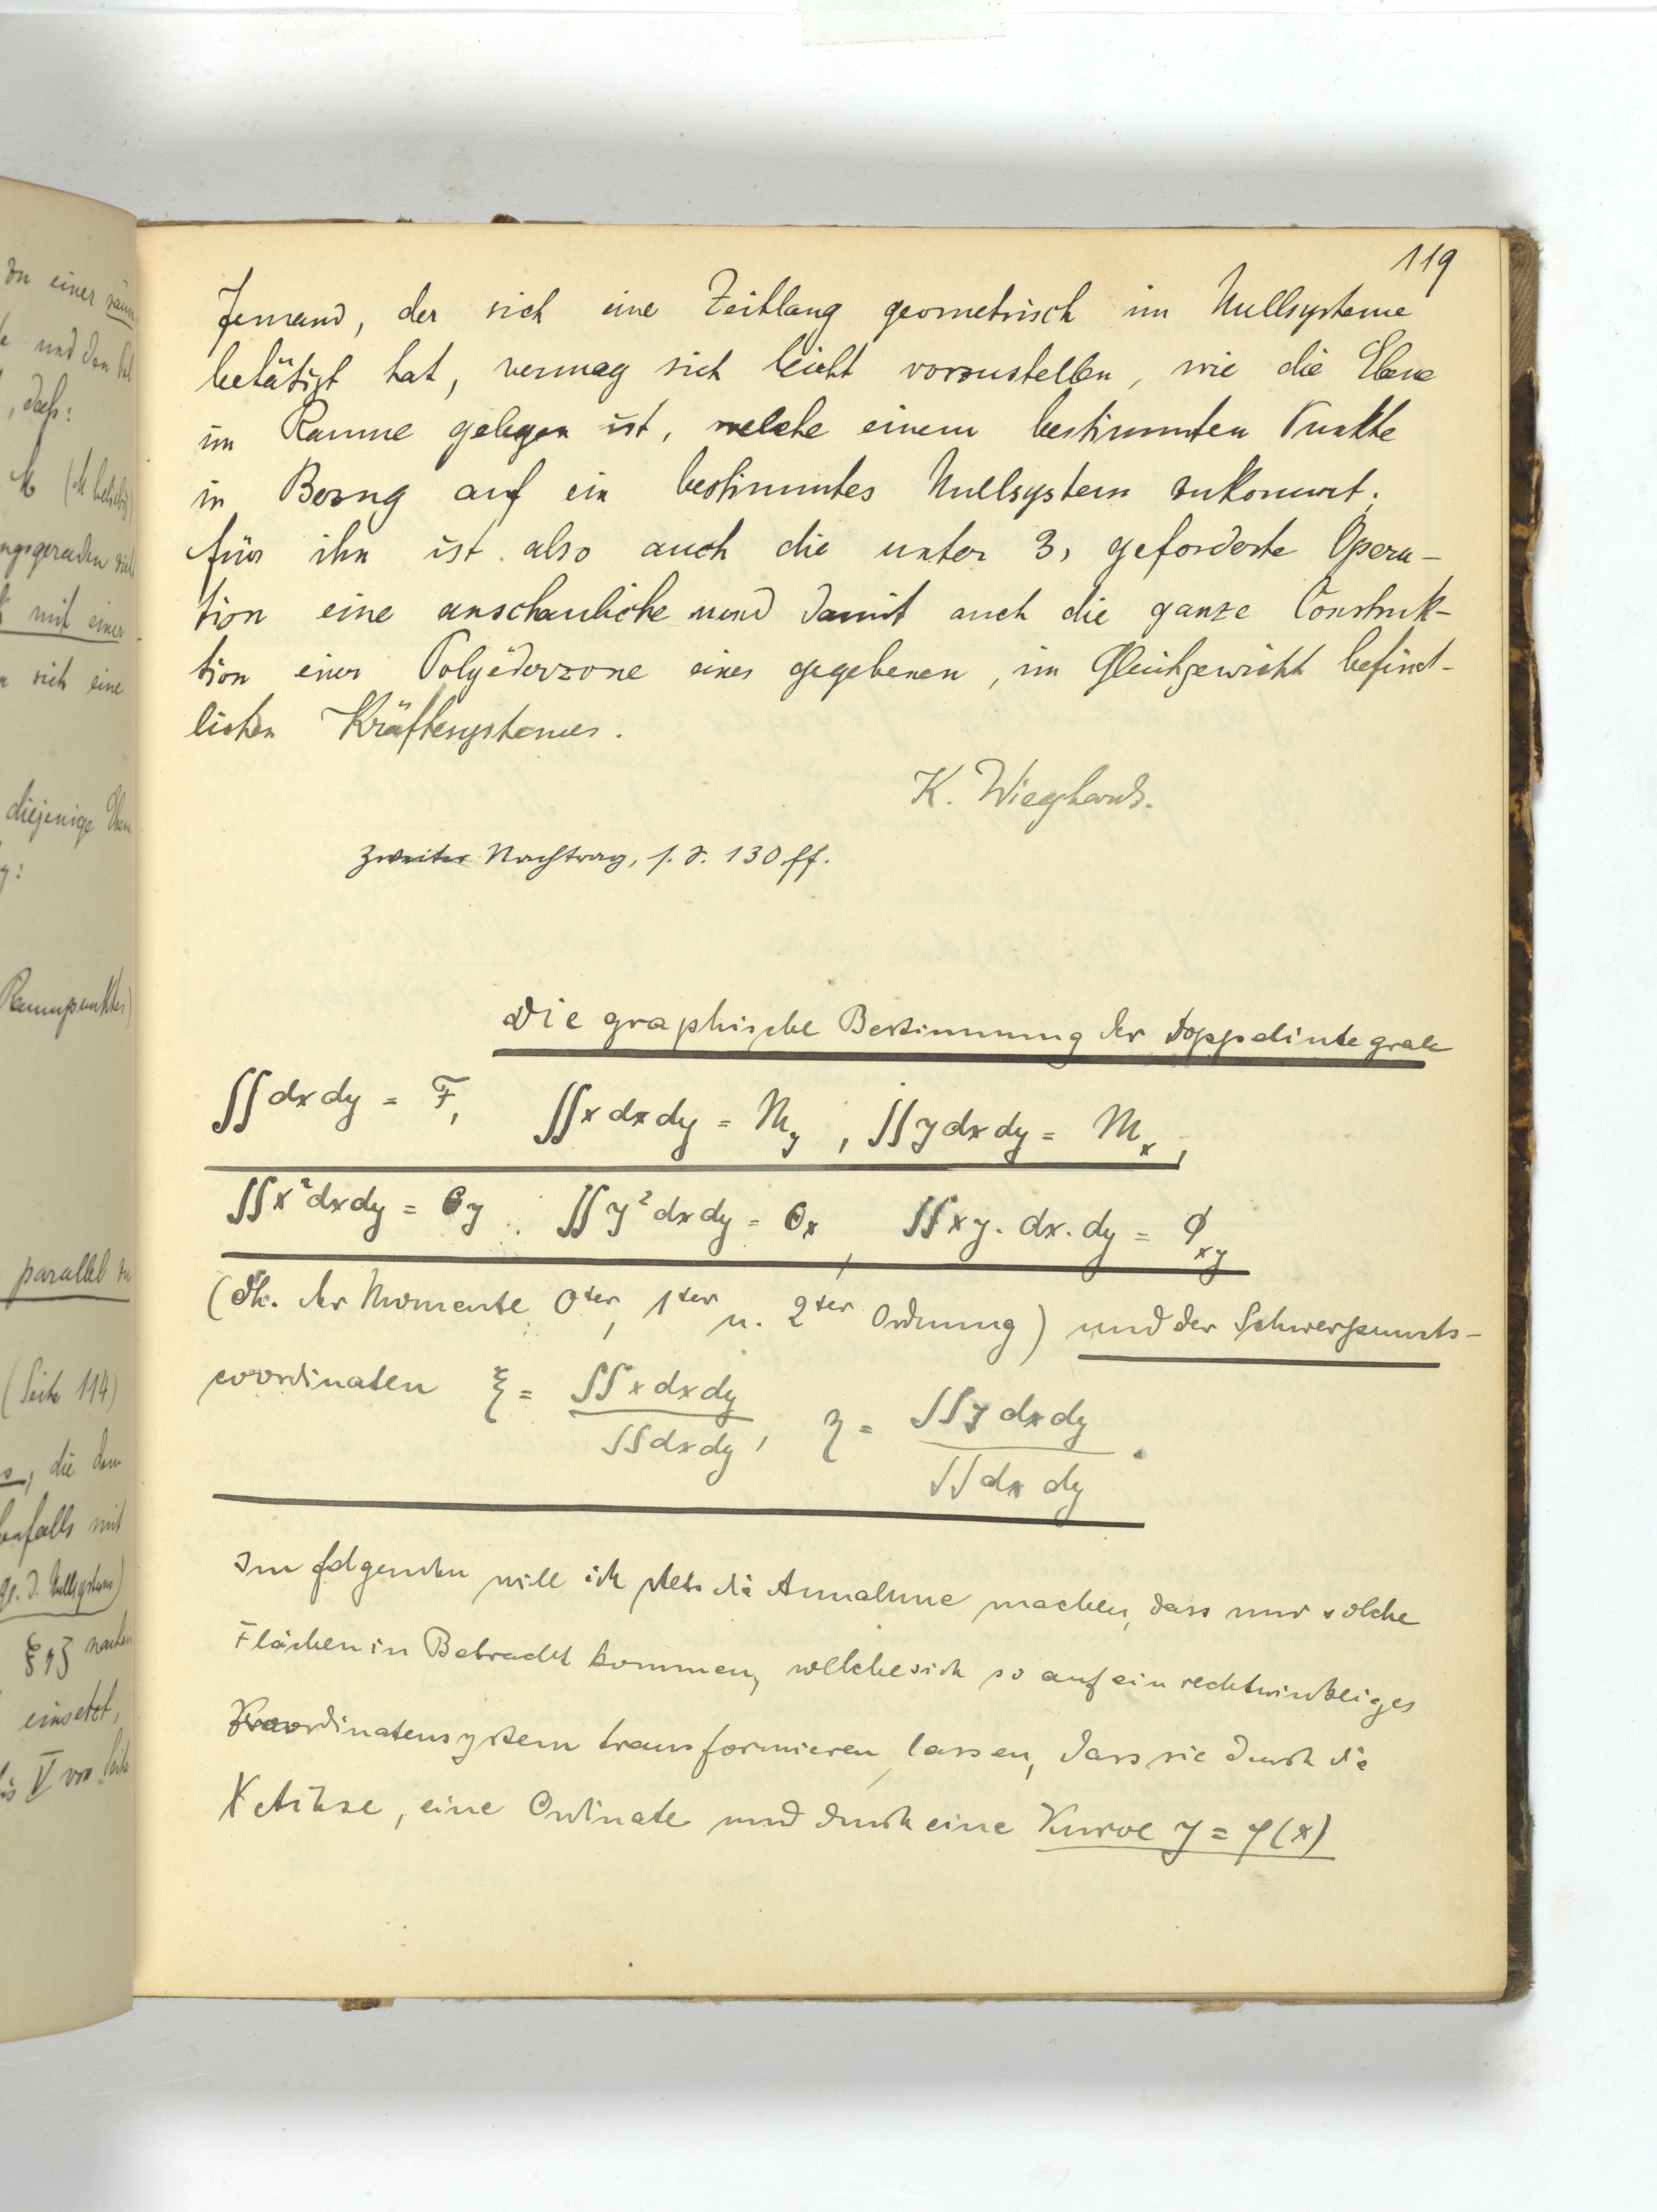 119
Jemand, der sich eine Zeitlang geometrisch im Nullsysteme
betätigt hat, vermag sich leicht vorzustellen, wie die Ebene
im Raume gelegen ist, welche einem bestimmten Punkte
in Bezug auf ein bestimmtes Nullsystem zukommt;
für ihn ist also auch die unter 3, geforderte Opera-
tion eine anschauliche und damit auch die ganze Construk-
tion einer Polyëderzone eines gegebenen, im Gleichgewicht befind-
lichen Kräftesystemes.
K. Wieghardt.
Zweiter Nachtrag, s. S. 130 ff.
Die graphische Bestimmung der Doppelintegrale
∫∫dxdy = F, ∫∫x dxdy = M_y, ∫∫y dxdy = M_x,
∫∫x²dxdy = Θ_y, ∫∫y²dxdy = Θ_x, ∫∫xy. dx. dy = Φ_xy
(dh. der Momente 0ter, 1ter u. 2ter Ordnung) und der Schwerpunkts-
coordinaten ξ = ∫∫x dxdy / ∫∫dxdy, η = ∫∫y dxdy / ∫∫dx dy.
Im folgenden will ich stets die Annahme machen, dass nur solche
Flächen in Betracht kommen, welche sich so auf ein rechtwinkliges
Koordinatensystem transformieren lassen, dass sie durch die
X Achse, eine Ordinate und durch eine Kurve y = φ(x)
zu einer
und den
, daß:
M (M beliebig)
mit einer
sich eine
diejenige Eben
Raumpunktes)
parallel zu
(Seite 114)
, die dem
mit
d. Nullsystems)
ξηζ
einsetzt,
V von Seite